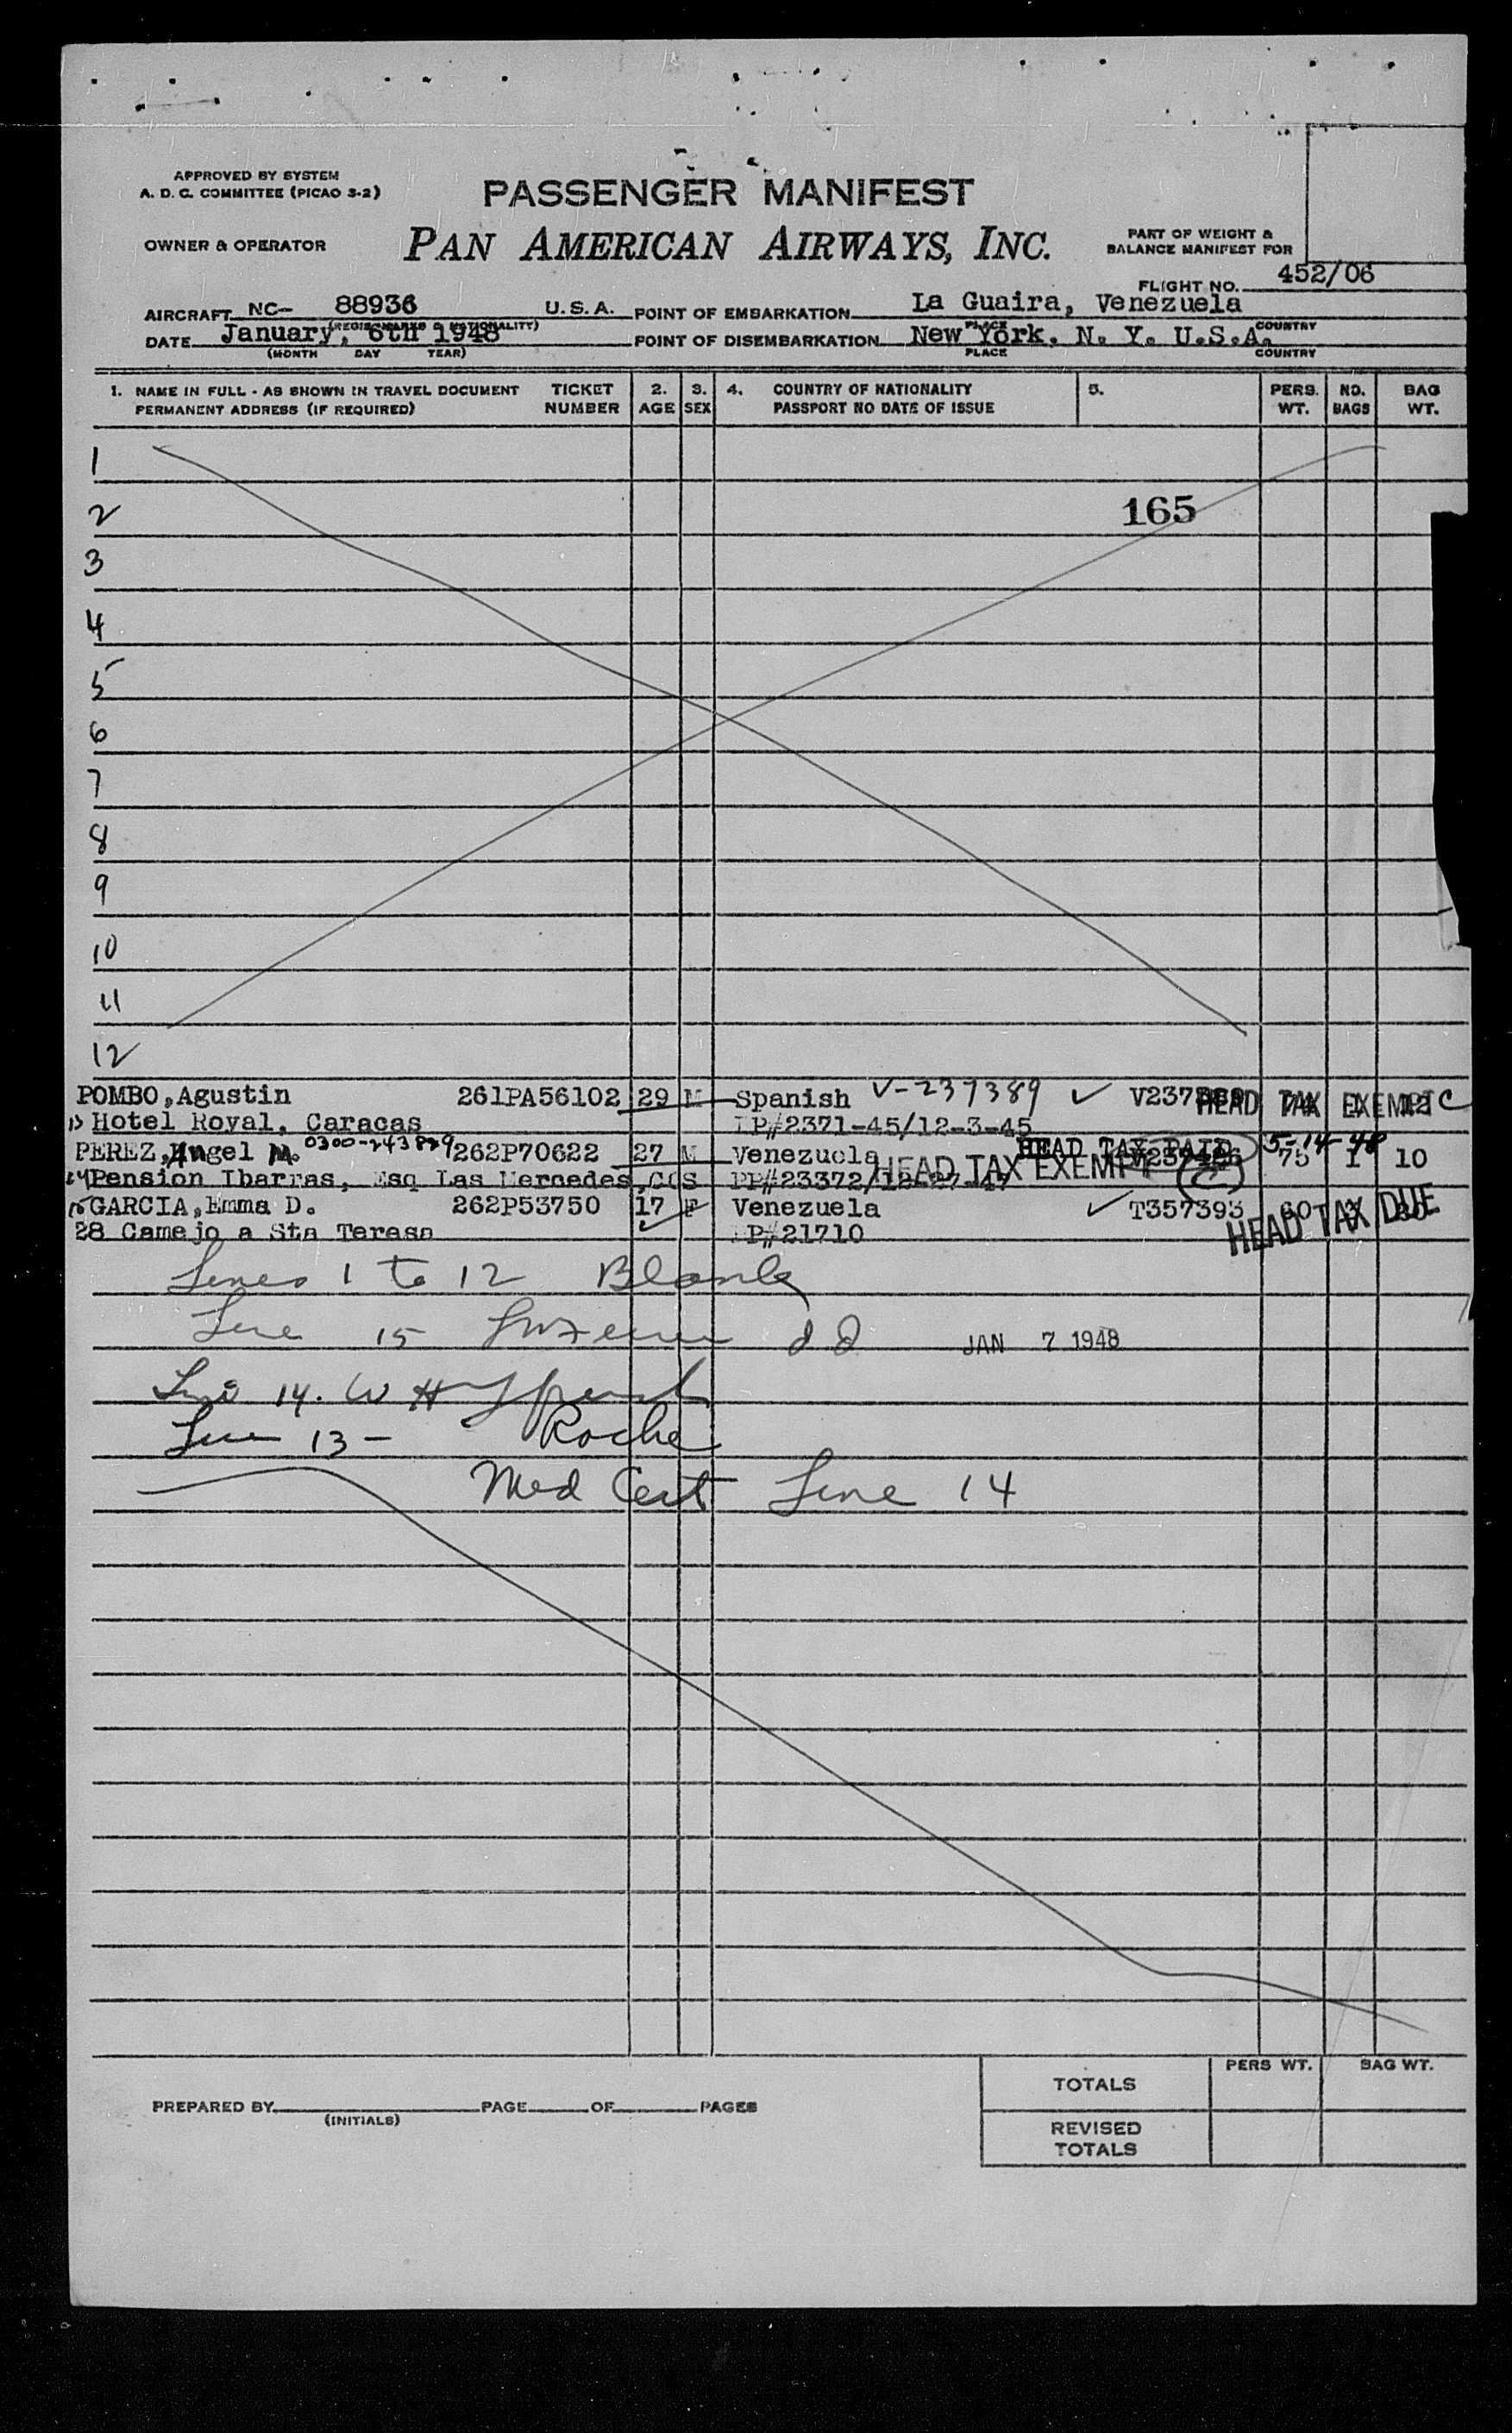 APPROVED BY SYSTEM
A. D. C. COMMITTEE (PICAO 3-2)
PASSENGER MANIFEST
OWNER & OPERATOR
PAN AMERICAN AIRWAYS, INC.
PART OF WEIGHT &
BALANCE MANIFEST FOR
FLIGHT NO. 452/06
AIRCRAFT NC- 88936 U.S.A. POINT OF EMBARKATION La Guaira, Venezuela
(REGIS. MARKS & NATIONALITY) PLACE COUNTRY
DATE January, 6th 1948 POINT OF DISEMBARKATION New York, N. Y. U.S.A.
(MONTH DAY YEAR) PLACE COUNTRY
1. NAME IN FULL - AS SHOWN IN TRAVEL DOCUMENT TICKET 2. 3. 4. COUNTRY OF NATIONALITY 5. PERS. NO. BAG
PERMANENT ADDRESS (IF REQUIRED) NUMBER AGE SEX PASSPORT NO DATE OF ISSUE WT. BAGS WT.
1
2 165
3
4
5
6
7
8
9
10
11
12
POMBO, Agustin 261PA56102 29 M Spanish V-237389 HEAD TAX EXEMPT C
13 Hotel Royal, Caracas PP#2371-45/12-3-45
PEREZ, Angel M. 0300-243829 262P70622 27 M Venezuela HEAD TAX PAID 5-14-48 75 1 10
14 Pension Ibarras, Esq Las Mercedes, CCS PP#23372/12-27-47 HEAD TAX EXEMPT C
15 GARCIA, Emma D. 262P53750 17 F Venezuela T357393 60
28 Camejo a Sta Teresa PP#21710 HEAD TAX DUE
Lines 1 to 12 Blank
Line 15
JAN 7 1948
Line 14. W H
Line 13 - Roche
Med Cert Line 14
PERS WT. BAG WT.
TOTALS
PREPARED BY PAGE OF PAGES
(INITIALS)
REVISED
TOTALS